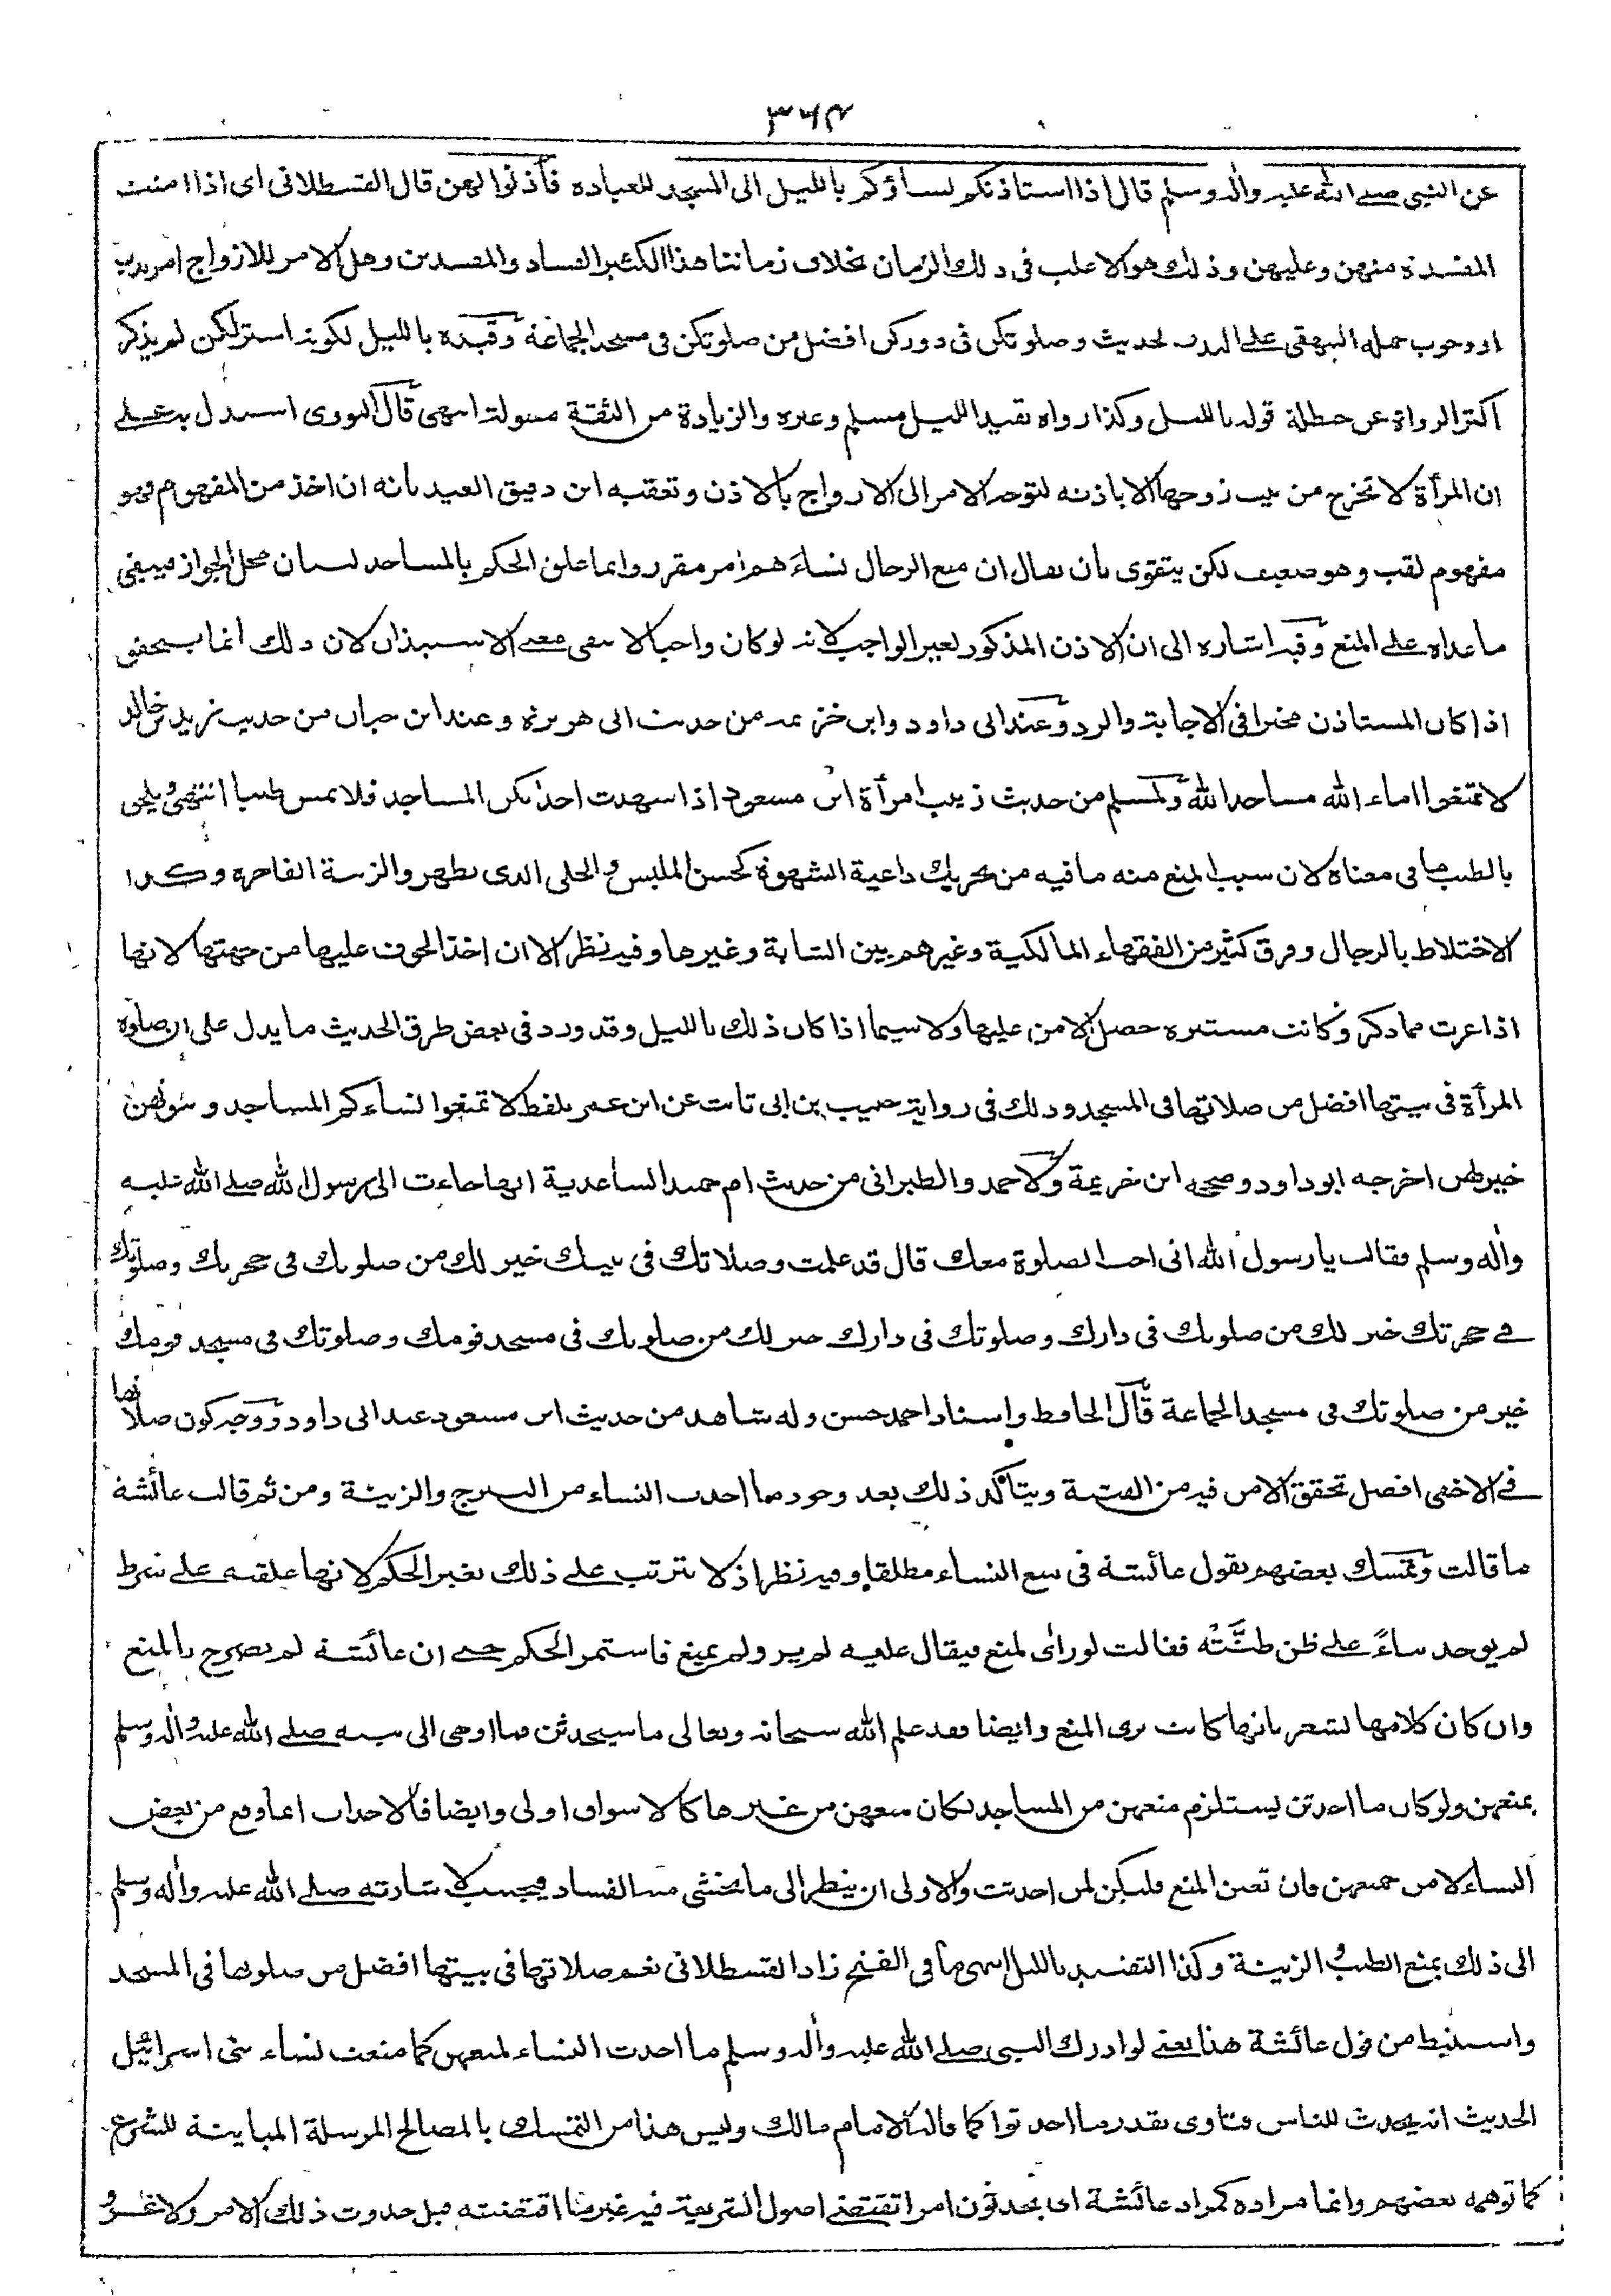 ٣٦٤
عن النبي صلے الله عليه واٰله وسلم قال اذا استاذنكم نساؤكم بالليل الى المسجد للعبادة فأذنوا لهن قال القسطلانى اى اذا امنت
المفسدة منهن وعليهن وذلك هو الاغلب فى ذلك الزمان بخلاف زماننا هذا الكثير الفساد والمفسدين وهل الامر للازواج امر ندب
او وجوب حمله البيهقى على الندب لحديث وصلوتكن فى دوركن افضل من صلوتكن فى مسجد الجماعة وقيده بالليل لكونه استر لكن لم يذكر
اكثر الرواة عن حنظلة قوله بالليل وكذا رواه بقيد الليل مسلم وغيره والزيادة من الثقة مقبولة انتهى قال النووى استدل به علے
ان المرأة لا تخرج من بيت زوجها الا باذنه لتوجه الامر الى الازواج بالاذن وتعقبه ابن دقيق العيد بانه ان اخذ من المفهوم فهو
مفهوم لقب وهو ضعيف لكن يتقوى بأن يقال ان منع الرجال نساءهم امر مقرر وانما علق الحكم بالمساجد لبيان محل الجواز فيبقى
ما عداه علے المنع وفيه اشارة الى ان الاذن المذكور لغير الواجب لانه لو كان واجبا لا نتفى معنے الاستيذان لان ذلك انما يتحقق
اذا كان المستاذن مخيرا فى الاجابة والرد وعند ابى داود وابن خزيمة من حديث ابى هريرة وعند ابن حبان من حديث زيد بن خالد
لا تمنعوا اماء الله مساجد الله ولمسلم من حديث زينب امرأة ابن مسعود اذا شهدت احداكن المساجد فلا تمس طيبا انتهى ويلحق
بالطيب ما فى معناه لان سبب المنع منه ما فيه من تحريك داعية الشهوة كحسن الملبس والحلى الذى يظهر والزينة الفاخرة وكذا
الاختلاط بالرجال وفرق كثير من الفقهاء المالكية وغيرهم بين الشابة وغيرها وفيه نظر الا ان اخذ الخوف عليها من جهتها لانها
اذا عريت مما ذكر وكانت مستترة حصل الامن عليها ولا سيما اذا كان ذلك بالليل وقد ورد فى بعض طرق الحديث ما يدل على ان صلوة
المرأة فى بيتها افضل من صلاتها فى المسجد وذلك فى رواية حبيب بن ابى ثابت عن ابن عمر بلفظ لا تمنعوا نساءكم المساجد وبيوتهن
خير لهن اخرجه ابو داود وصححه ابن خزيمة ولاحمد والطبرانى من حديث ام حميد الساعدية انها جاءت الى رسول الله صلے الله عليه
واٰله وسلم فقالت يا رسول الله انى احب الصلوة معك قال قد علمت وصلاتك فى بيتك خير لك من صلوتك فى حجرتك وصلوتك
فے حجرتك خير لك من صلوتك فى دارك وصلوتك فى دارك خير لك من صلوتك فى مسجد قومك وصلوتك فى مسجد قومك
خير من صلوتك فى مسجد الجماعة قال الحافظ واسناد احمد حسن وله شاهد من حديث ابن مسعود عند ابى داود ووجه كون صلاتها
فے الاخفى افضل تحقق الامن فيه من الفتنة ويتأكد ذلك بعد وجود ما احدث النساء من التبرج والزينة ومن ثم قالت عائشة
ما قالت وتمسك بعضهم بقول عائشة فى منع النساء مطلقا وفيه نظر اذ لا يترتب على ذلك تغير الحكم لانها علقته علے شرط
لم يوجد بناءً علے ظن ظنَّتْه فقالت لو راى لمنع فيقال عليه لم ير ولم يمنع فاستمر الحكم حتے ان عائشة لم تصرح بالمنع
وان كان كلامها يشعر بانها كانت ترى المنع وايضا فقد علم الله سبحانه وتعالى ما سيحدثن فما اوحى الى نبيه صلے الله عليه واٰله وسلم
بمنعهن ولو كان ما احدثن يستلزم منعهن من المساجد لكان منعهن من غيرها كالاسواق اولى وايضا فالاحداث انما وقع من بعض
النساء لا من جميعهن فان تعين المنع فليكن لمن احدثت والاولى ان ينظر الى ما يخشى منه الفساد فيجتنب لاشارته صلے الله عليه واٰله وسلم
الى ذلك بمنع الطيب والزينة وكذا التقييد بالليل انتهى ما فى الفتح زاد القسطلانى نعم صلاتها فى بيتها افضل من صلوتها فى المسجد
واستنبط من قول عائشة هذا يعنے لو ادرك النبى صلے الله عليه واٰله وسلم ما احدث النساء لمنعهن كما منعت نساء بنى اسرائيل
الحديث انه يحدث للناس فتاوى بقدر ما احدثوا كما قاله الامام مالك وليس هذا من التمسك بالمصالح المرسلة المباينة للشرع
كما توهمه بعضهم وانما مراده كمراد عائشة اى يحدثون امرا تقتضے اصول الشريعة فيه غير ما اقتضته قبل حدوث ذلك الامر ولا غرو